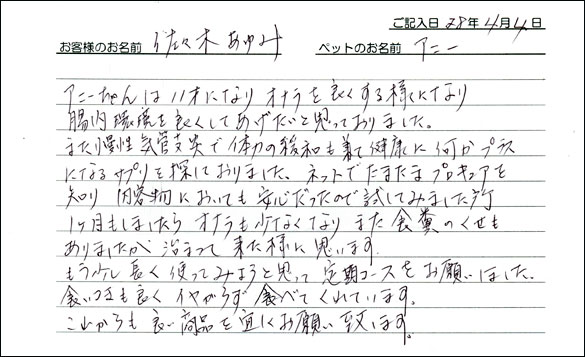 ご記入日 28年4月4日
お客様のお名前 佐々木あゆみ ペットのお名前 アニー
アニーちゃんは11才になり オナラを良くする様になり
腸内環境を良くしてあげたいと思っておりました。
また慢性気管支炎で体力の緩和も兼て健康に何かプラス
になるサプリを探しておりました。ネットでたまたまプロキュアを
知り 内容物においても安心だったので試してみました所
1ヶ月もしましたら オナラも少なくなり また食糞のくせも
ありましたが 治まって来た様に思います。
もう少し長く使ってみようと思って定期コースをお願いしました。
食いつきも良く イヤがらず食べてくれています。
これからも良い商品を宜しくお願い致します。